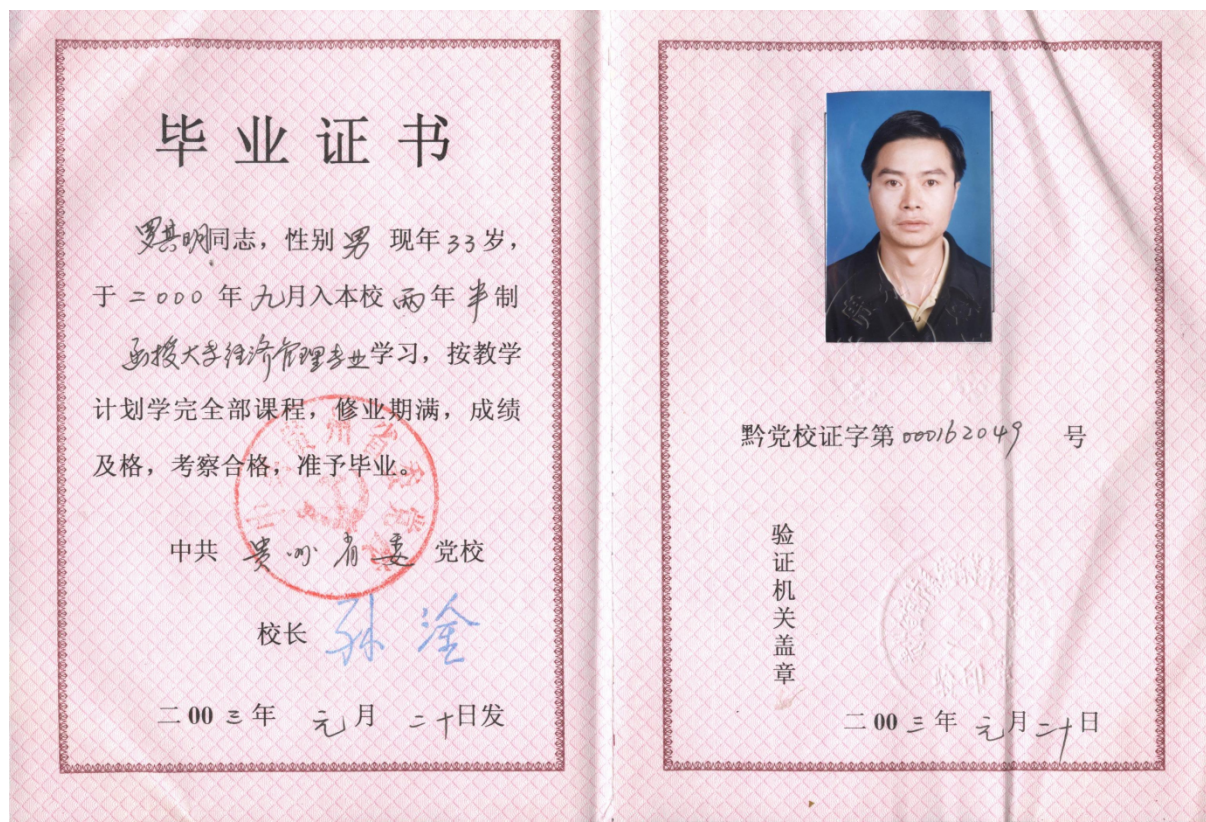 毕业证书
罗其明同志，性别 男 现年33岁，
于二000年九月入本校两年半制
函授大学经济管理专业学习，按教学
计划学完全部课程，修业期满，成绩
及格，考察合格，准予毕业。
中共 贵州省委 党校
校长 孙淦
二00三年 元月 二十日发
黔党校证字第000162049 号
验证机关盖章
二00三年 元月二十日